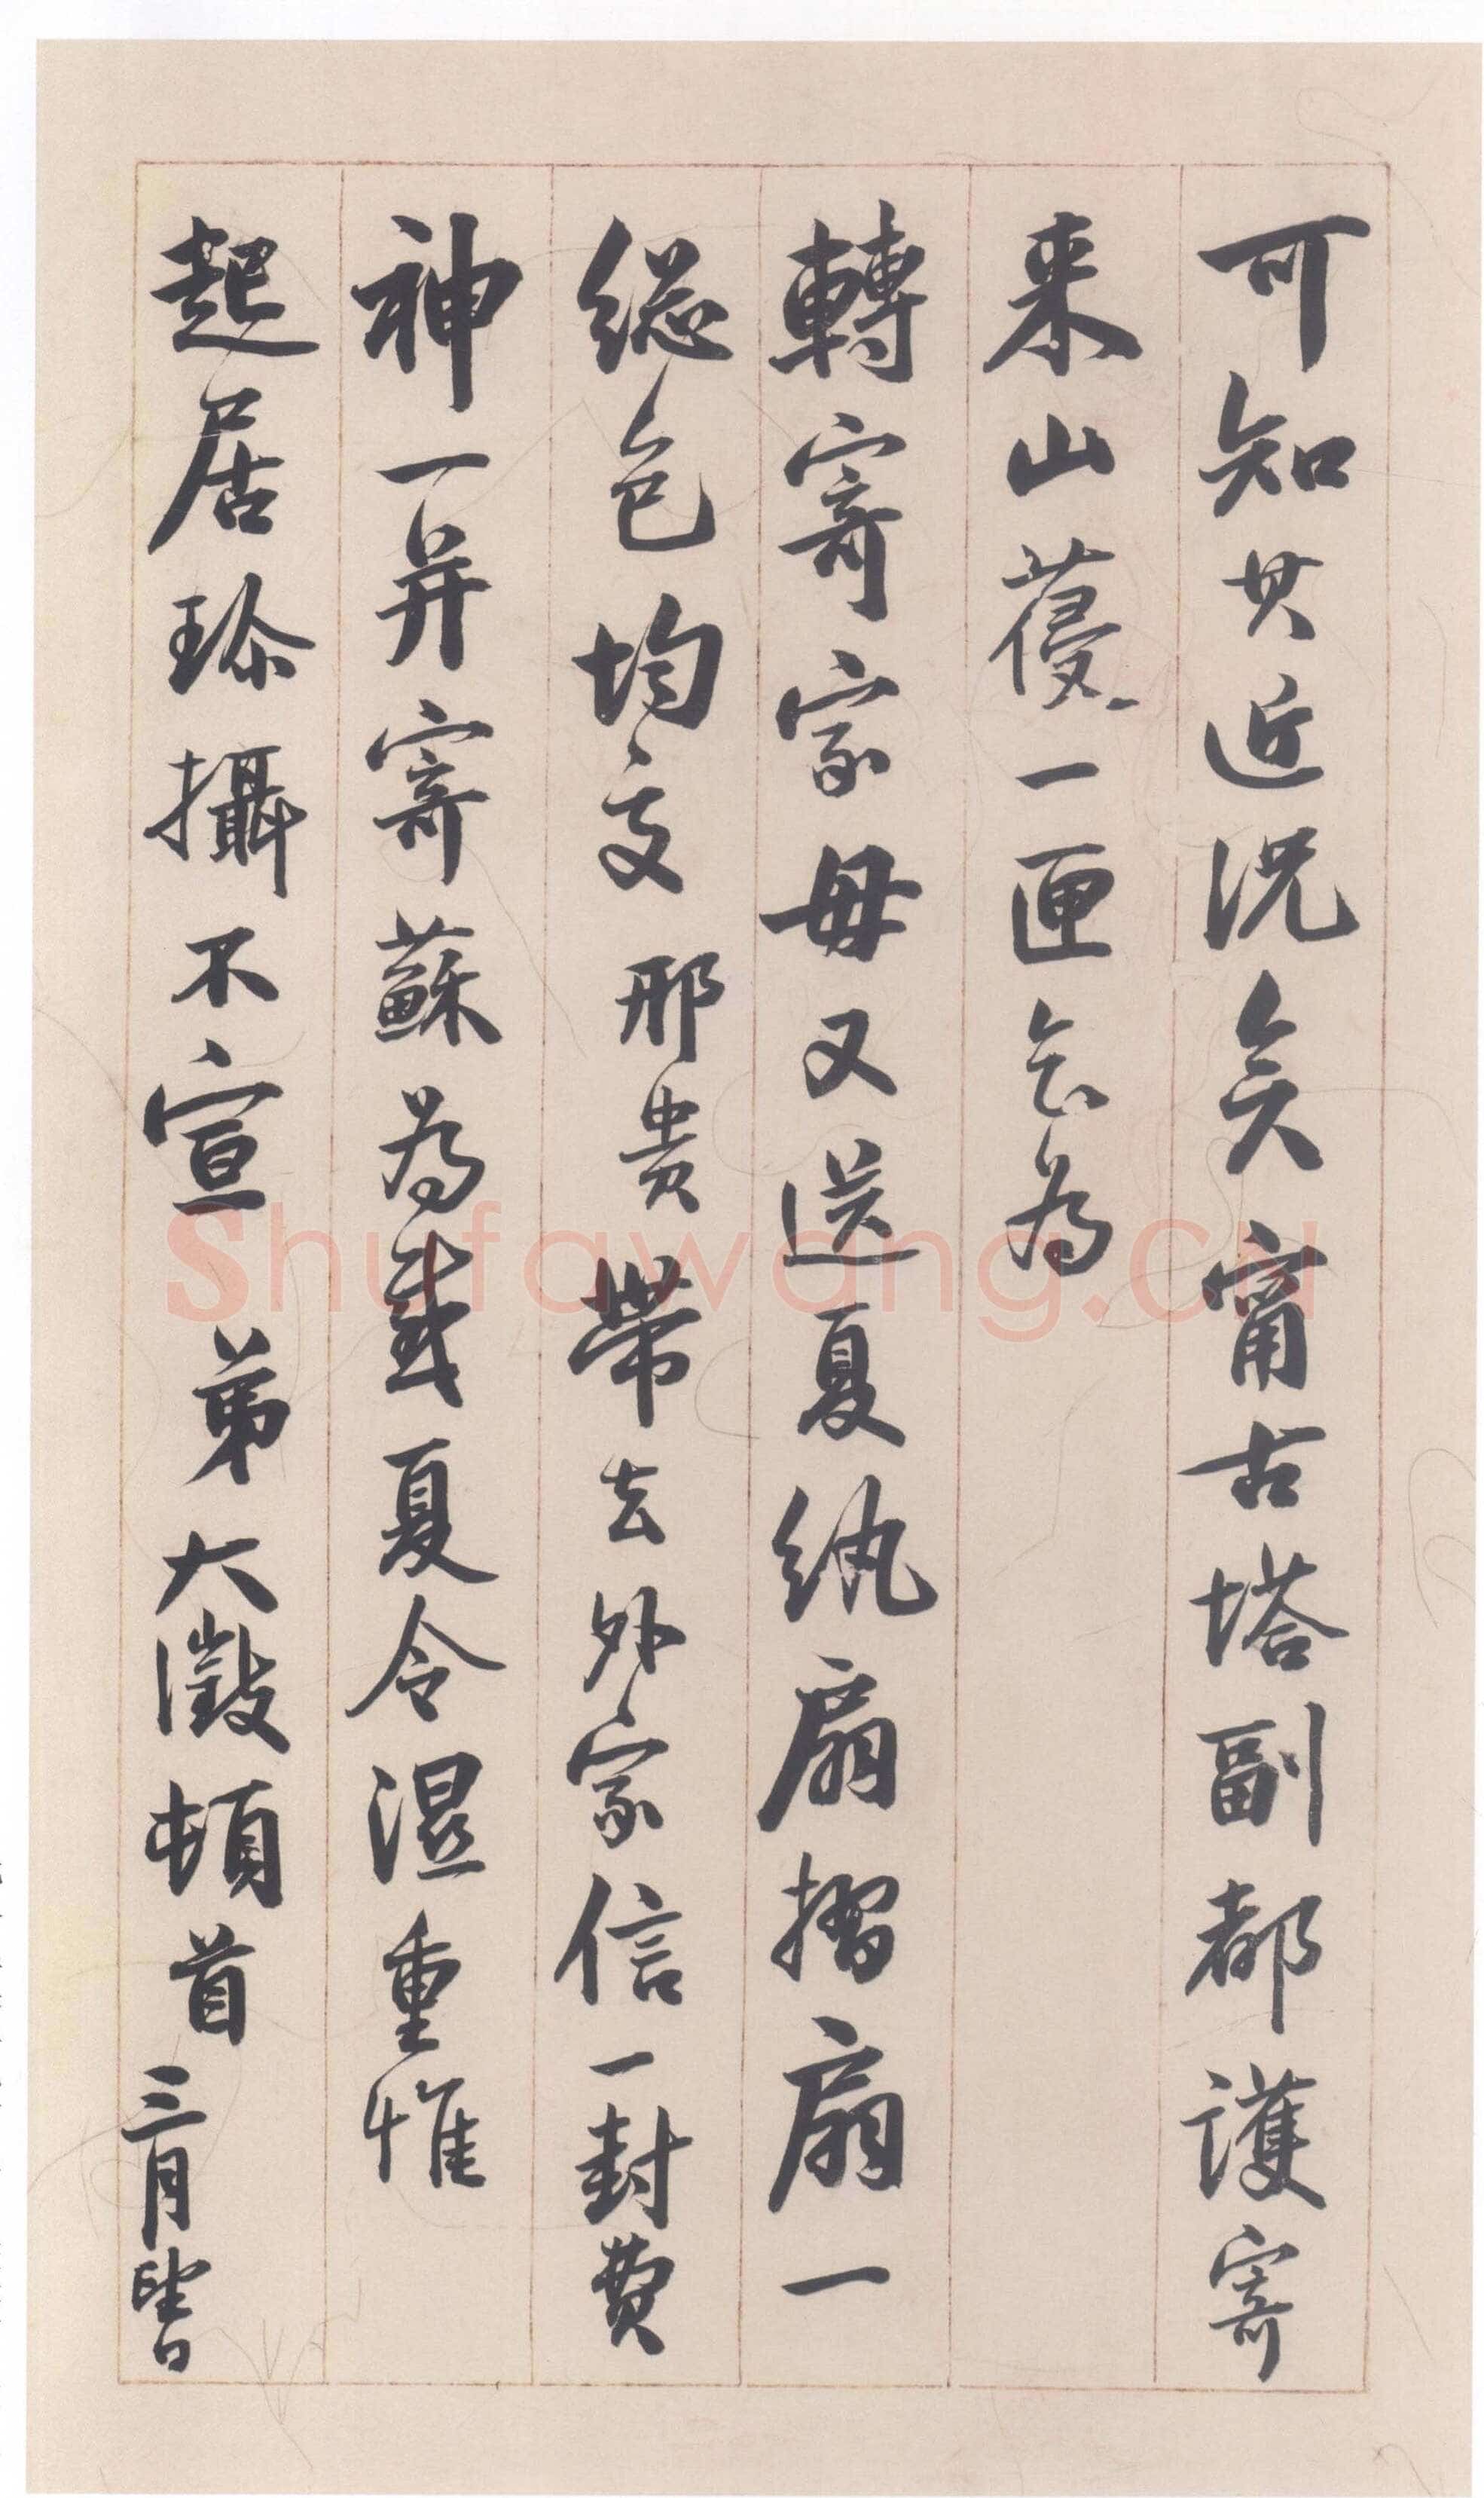 可知其近況矣甯古塔副都護寄
来山葠一匣乞為
轉寄家母又送夏紈扇摺扇一
総包均交邢貴帶去外家信一封費
神一并寄蘇為感夏令濕重惟
起居珍攝不宣 弟大澂頓首 三月望日
Shufawang.cn